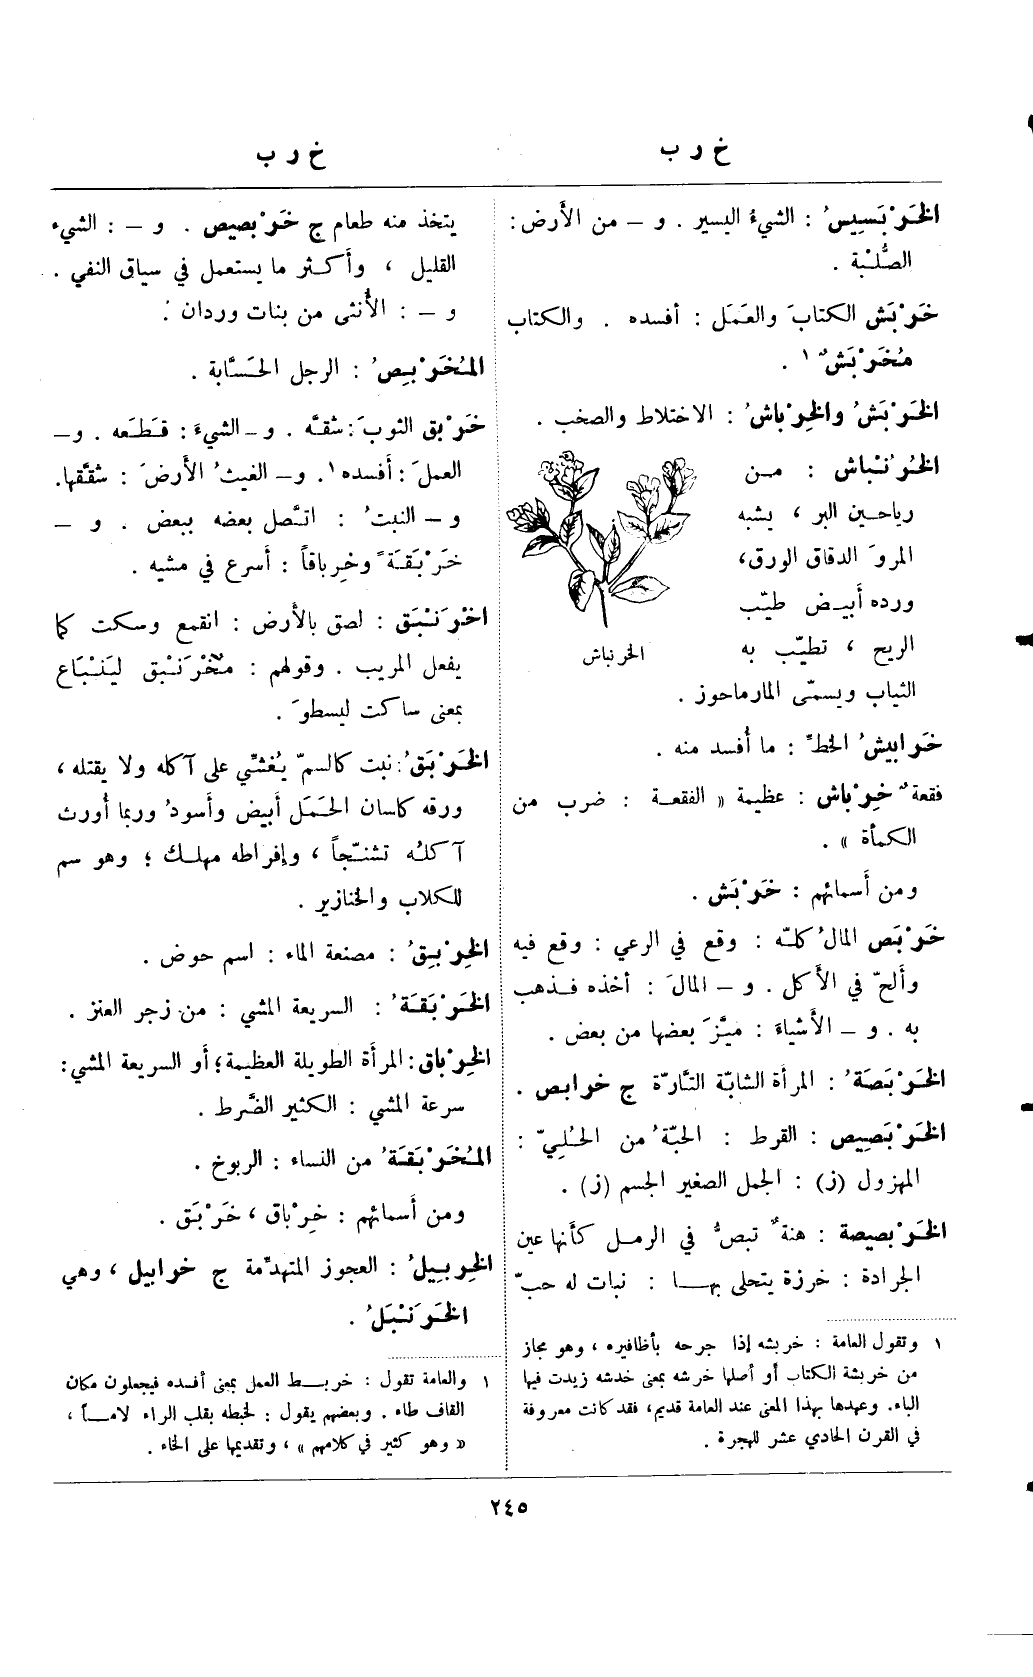 خ ر ب
الخَرْبَسِيسُ : الشيءُ اليسير . و – من الأَرض :
الصُّلْبة .
خَرْبَش الكتابَ والعَمَل : أفسده . والكتاب
مُخَرْبَشٌ ١ .
الخَرْبَشُ والخِرْباش : الاختلاط والصخب .
الخُرُنْباش : من
رياحين البر ، يشبه
المروَ الدقاق الورق،
ورده أَبيض طيّب
الريح ، تطيّب به
الثياب ويسمّى المارماحوز .
الخرنباش
خَرابيشُ الخطِّ : ما أُفسد منه .
فقعةٌ خِرْباش : عظيمة « الفقعة : ضرب من
الكمأة » .
ومن أَسمائهم : خَرْبَش .
خَرْبَص المالُ كلَّه : وقع في الرعي : وقع فيه
وأَلحّ في الأَكل . و – المالَ : أخذه فذهب
به . و – الأَشياءَ : ميَّزَ بعضها من بعض .
الخَرْبَصَةُ : المرأة الشابّة التارّة ج خرابص .
الخَرْبَصِيص : القرط : الحبّةُ من الحُلِيّ :
المهزول (ز) : الجمل الصغير الجسم (ز) .
الخَرْبصيصة : هنةٌ تبصُّ في الرمل كأَنها عين
الجرادة : خرزة يتحلى بها : نبات له حبّ
١ وتقول العامة : خربشه إذا جرحه بأظافيره ، وهو مجاز
من خربشة الكتاب أو أصلها خرشه بمعنى خدشه زيدت فيها
الباء. وعهدها بهذا المعنى عند العامة قديم، فقد كانت معروفة
في القرن الحادي عشر للهجرة .
خ ر ب
يتخذ منه طعام ج خَرْبصيص . و – : الشيء
القليل ، وأكثر ما يستعمل في سياق النفي .
و – : الأُنثى من بنات وردان .
المُخَرْبِصُ : الرجل الحَسَّابة .
خَرْبق الثوبَ : شقَّه . و– الشيءَ : قَطَعه . و–
العملَ : أَفسده ١ . و– الغيثُ الأَرضَ : شقَّقها.
و – النبتُ : اتَّصل بعضه ببعض . و –
خَرْبَقَةً وخِرباقاً : أَسرع في مشيه .
اخْرَنْبَق : لصق بالأَرض : انقمع وسكت كما
يفعل المريب . وقولهم : مُخْرَنْبق ليَنْبَاع
بمعنى ساكت ليسطوَ .
الخَرْبَقُ : نبت كالسمّ يُغشّي على آكله ولا يقتله ،
ورقه كلسان الحَمَل أَبيض وأَسود وربما أَورث
آكله تشنّجاً ، وإفراطه مهلك ؛ وهو سم
للكلاب والخنازير .
الخِرْبِقُ : مصنعة الماء : اسم حوض .
الخَرْبَقَةُ : السريعة المشي : من زجر العنز .
الخِرْباق : المرأة الطويلة العظيمة؛ أَو السريعة المشي :
سرعة المشي : الكثير الضَّرط .
المُخَرْبَقَةُ من النساء : الربوخ .
ومن أَسمائهم : خِرْباق ، خَرْبَق .
الخِربيلُ : العجوز المتهدّمة ج خرابيل ، وهي
الخَرَنْبَلُ .
١ والعامة تقول : خربط العمل بمعنى أفسده فيجعلون مكان
القاف طاء . وبعضهم يقول : لخبطه بقلب الراء لاماً ،
« وهو كثير في كلامهم » ، وتقديمها على الخاء .
٢٤٥